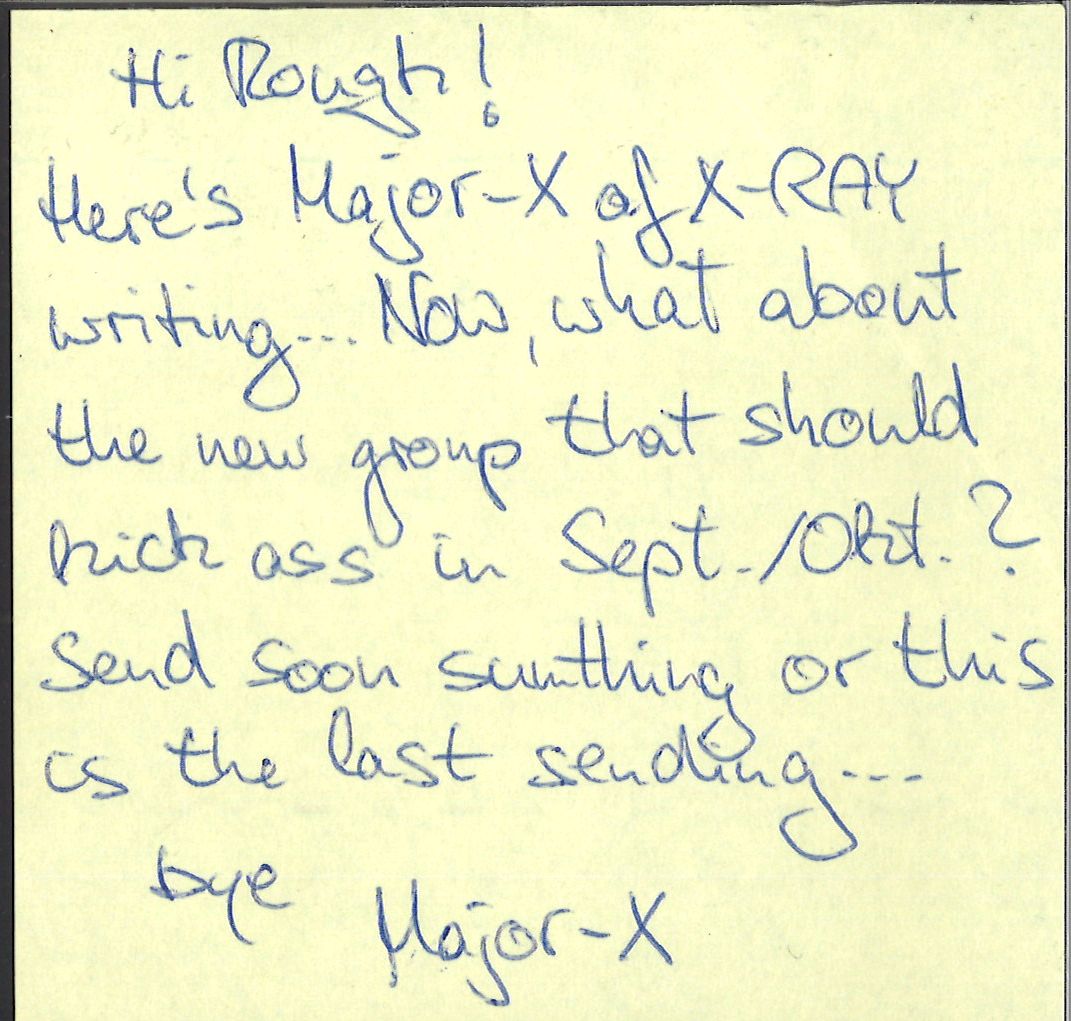 Hi Rough!
Here's Major-X of X-RAY
writing... Now, what about
the new group that should
kick ass in Sept./Okt.?
Send soon sumthing or this
is the last sending...
bye
Major-X